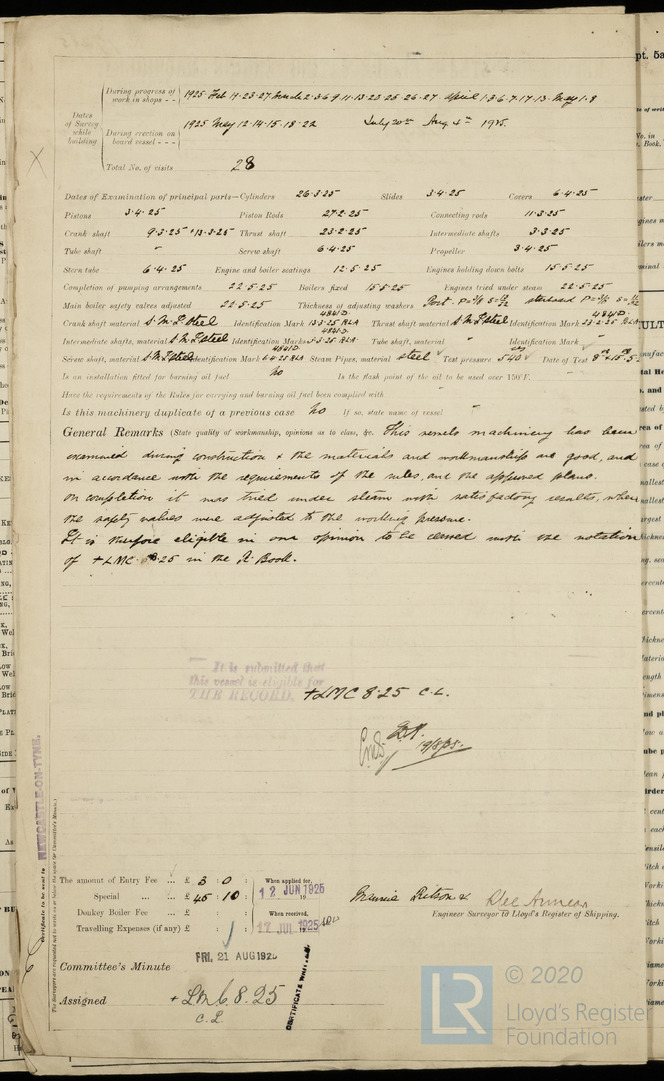 During progress of work in shops - - 1925 Feb 19·23·27 March 2·3·6·9·11·13·23·25·26·27 April 1·3·6·7·17·13· May 1·8
Dates of Survey while building
During erection on board vessel - - - 1925 May 12·14·15·18·22 July 20th Aug 4th 1925.
Total No. of visits 28
Dates of Examination of principal parts—Cylinders 26·3·25 Slides 3·4·25 Covers 6·4·25
Pistons 3·4·25 Piston Rods 27·2·25 Connecting rods 11·3·25
Crank shaft 9·3·25 + 13·3·25 Thrust shaft 23·2·25 Intermediate shafts 3·3·25
Tube shaft " Screw shaft 6·4·25 Propeller 3·4·25
Stern tube 6·4·25 Engine and boiler seatings 12·5·25 Engines holding down bolts 15·5·25
Completion of pumping arrangements 22·5·25 Boilers fixed 15·5·25 Engines tried under steam 22·5·25
Main boiler safety valves adjusted 22·5·25 Thickness of adjusting washers Port starboard
Crank shaft material S.M.I. Steel Identification Mark 4841D 13·3·25 RLA Thrust shaft material S.M.I. Steel Identification Mark 4841D 23·2·25 RLA
Intermediate shafts, material S.M.I. Steel Identification Marks 4841D 3·3·25 RLA Tube shaft, material " Identification Mark
Screw shaft, material S.M.I. Steel Identification Mark 4841D 6·4·25 RLA Steam Pipes, material steel Test pressure 540 Date of Test
Is an installation fitted for burning oil fuel No Is the flash point of the oil to be used over 150°F.
Have the requirements of the Rules for carrying and burning oil fuel been complied with
Is this machinery duplicate of a previous case No If so, state name of vessel "
General Remarks (State quality of workmanship, opinions as to class, &c. This vessels machinery has been
examined during construction & the materials and workmanship are good, and
in accordance with the requirements of the rules, and the approved plans.
On completion it was tried under steam with satisfactory results, when
the safety valves were adjusted to the working pressure.
It is therefore eligible in our opinion to be classed with the notation
of + LMC 8·25 in the R. Book.
It is submitted that
this vessel is eligible for
THE RECORD. + LMC 8·25 C.L.
19/8/25.
NEWCASTLE-ON-TYNE.
Certificate to be sent to
The amount of Entry Fee ... £ 3 : 0 : When applied for,
Special ... ... £ 45 : 10 : 12 JUN 1925
Donkey Boiler Fee ... £ : : When received,
Travelling Expenses (if any) £ : : 17 JUL 1925
Engineer Surveyor to Lloyd's Register of Shipping.
FRI. 21 AUG 1925
Committee's Minute
Assigned + LMC 8.25
C.L.
CERTIFICATE WRITTEN.
LR © 2020
Lloyd's Register
Foundation